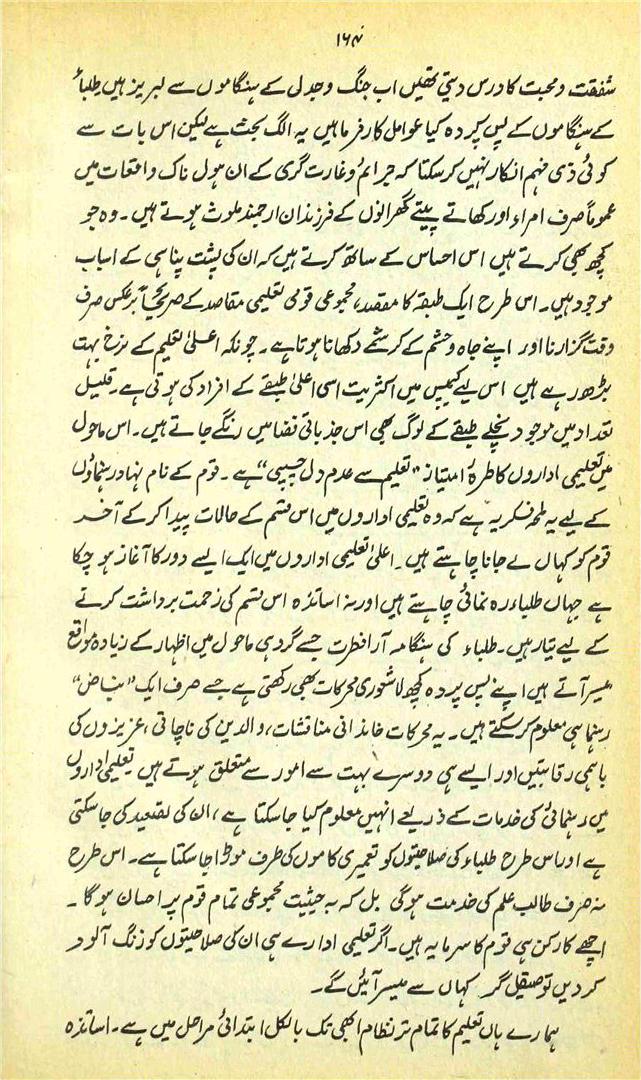 ۱۶۴
شفقت و محبت کا درس دیتی تھیں اب جنگ و جدل کے ہنگاموں سے لبریز ہیں طلباء
کے ہنگاموں کے پس پردہ کیا عوامل کارفرما ہیں یہ الگ بحث ہے لیکن اس بات سے
کوئی ذی فہم انکار نہیں کرسکتا کہ جرائم و غارت گری کے ان ہول ناک واقعات میں
عموماً صرف امراء اور کھاتے پیتے گھرانوں کے فرزندان ارجمند ملوث ہوتے ہیں۔ وہ جو
کچھ بھی کرتے ہیں اس احساس کے ساتھ کرتے ہیں کہ ان کی پشت پناہی کے اسباب
موجود ہیں۔ اس طرح ایک طبقہ کا مقصد، مجموعی قومی تعلیمی مقاصد کے صریحاً برعکس صرف
وقت گزارنا اور اپنے جاہ و حشم کے کرشمے دکھانا ہوتا ہے۔ چونکہ اعلیٰ تعلیم کے نرخ بہت
بڑھ رہے ہیں اس لیے کیمپس میں اکثریت اسی اعلیٰ طبقے کے افراد کی ہوتی ہے۔ قلیل
تعداد میں موجود نچلے طبقے کے لوگ بھی اس جذباتی فضا میں رنگے جاتے ہیں۔ اس ماحول
میں تعلیمی اداروں کا طرۂ امتیاز "تعلیم سے عدم دل چسپی" ہے۔ قوم کے نام نہاد رہنماؤں
کے لیے یہ لمحہ فکریہ ہے کہ وہ تعلیمی اداروں میں اس قسم کے حالات پیدا کرکے آخر
قوم کو کہاں لے جانا چاہتے ہیں۔ اعلیٰ تعلیمی اداروں میں ایک ایسے دور کا آغاز ہو چکا
ہے جہاں طلباء رہ نمائی چاہتے ہیں اور نہ اساتذہ اس قسم کی زحمت برداشت کرنے
کے لیے تیار ہیں۔ طلباء کی ہنگامہ آرا فطرت جسے گروہی ماحول میں اظہار کے زیادہ مواقع
میسر آتے ہیں اپنے پس پردہ کچھ لاشعوری محرکات بھی رکھتی ہے جسے صرف ایک "نباض"
رہنما ہی معلوم کرسکتے ہیں۔ یہ محرکات خاندانی مناقشات، والدین کی ناچاقی، عزیزوں کی
باہمی رقابتیں اور ایسے ہی دوسرے بہت سے امور سے متعلق ہوتے ہیں تعلیمی اداروں
میں رہنمائی کی خدمات کے ذریعے انہیں معلوم کیا جاسکتا ہے، ان کی تصعید کی جاسکتی
ہے اور اس طرح طلباء کی صلاحیتوں کو تعمیری کاموں کی طرف موڑا جاسکتا ہے۔ اس طرح
نہ صرف طالب علم کی خدمت ہوگی بل کہ بہ حیثیت مجموعی تمام قوم پر احسان ہوگا۔
اچھے کارکن ہی قوم کا سرمایہ ہیں۔ اگر تعلیمی ادارے ہی ان کی صلاحیتوں کو زنگ آلود
کردیں تو صیقل گر کہاں سے میسر آئیں گے۔
ہمارے ہاں تعلیم کا تمام تر نظام ابھی تک بالکل ابتدائی مراحل میں ہے۔ اساتذہ